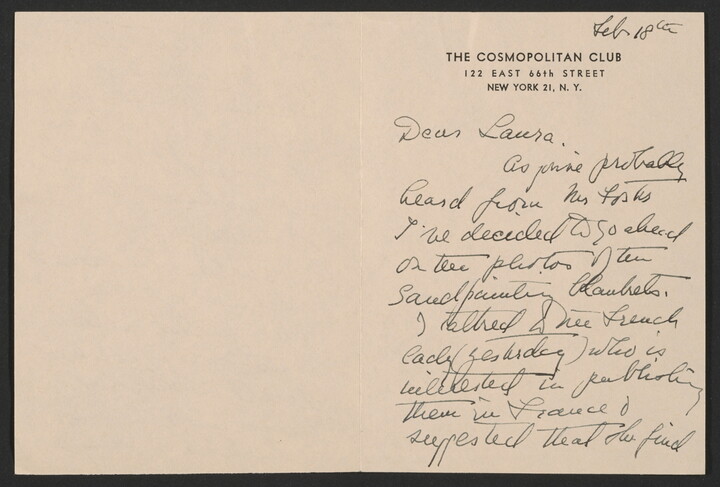 Feb 18th
THE COSMOPOLITAN CLUB
122 EAST 66th STREET
NEW YORK 21, N. Y.
Dear Laura.
As you've probably
heard from Mr Foster
I've decided to go ahead
on the photos of the
Sandpainting blankets.
I talked to the French
lady (yesterday) who is
interested in publishing
them in France &
suggested that she find